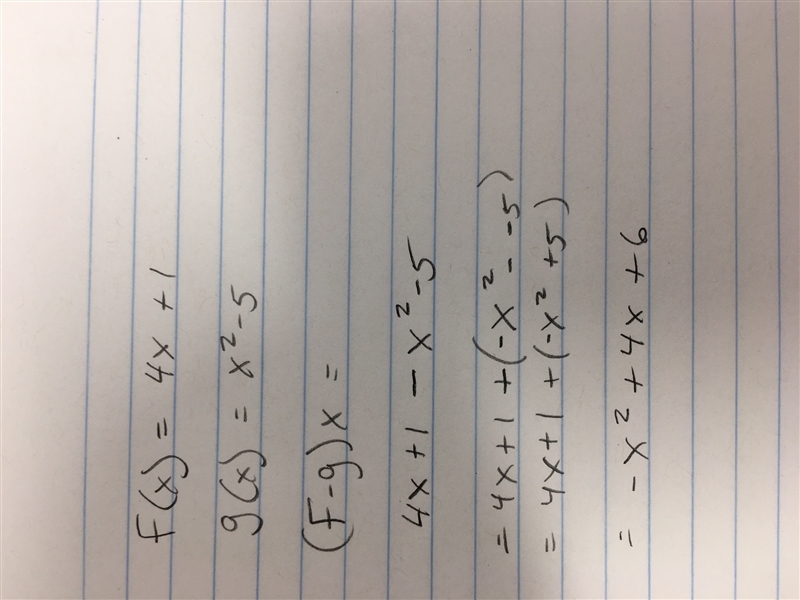 F(x) = 4x + 1
g(x) = x² - 5
(F-g)x =
4x + 1 - x² - 5
= 4x + 1 + (-x² - -5)
= 4x + 1 + (-x² + 5)
= -x² + 4x + 6